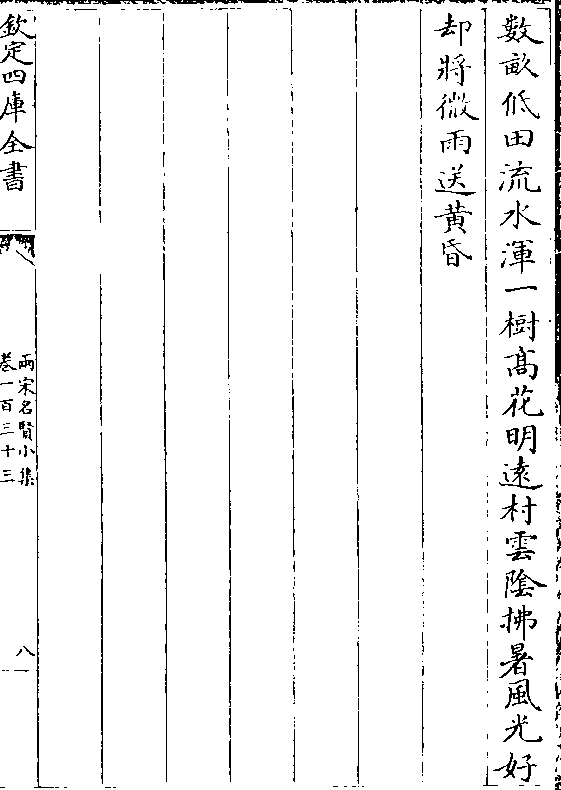 數畝低田流水渾一樹髙花明逺村雲陰拂暑風光好
却將微雨送黄昏
欽定四庫全書
兩宋名賢小集
卷一百三十三
八